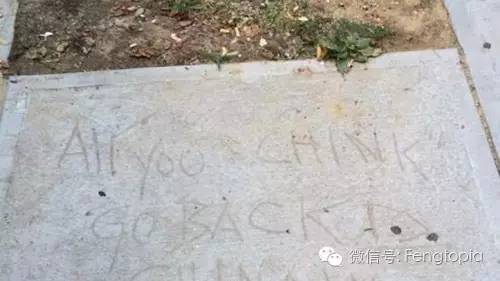 "All YOU CHINK"
GO BACK TO
微信号: Fengtopia